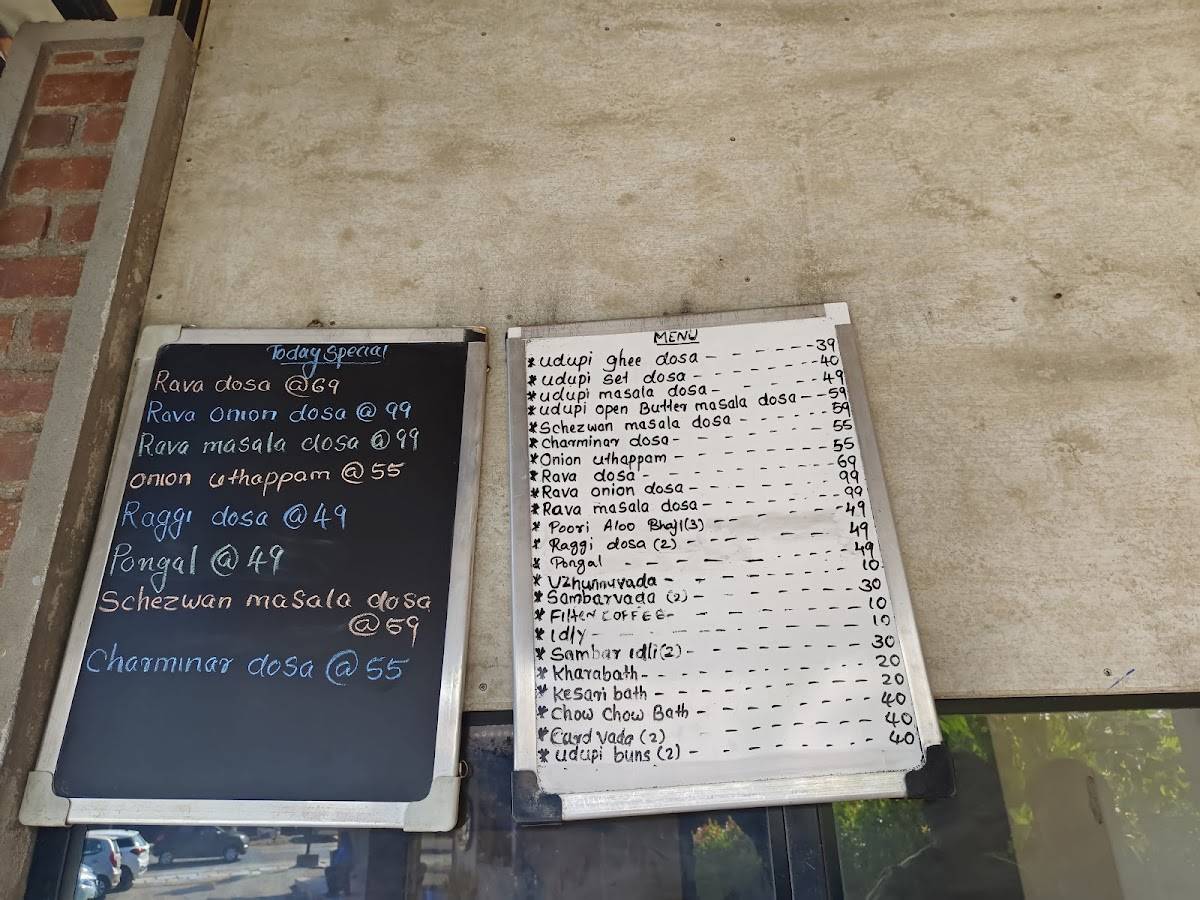 Today Special
Rava dosa @69
Rava onion dosa @ 99
Rava masala dosa @99
onion uthappam @ 55
Raggi dosa @49
Pongal @ 49
Schezwan masala dosa
@59
Charminar dosa @ 55
MENU
* udupi ghee dosa - - - - - - - 39
* udupi set dosa - - - - - - - 40
* udupi masala dosa - - - - - - 49
* udupi open Butter masala dosa - - 59
* Schezwan masala dosa - - - - - 59
* Charminar dosa - - - - - - 55
* Onion uthappam - - - - - - 55
* Rava dosa - - - - - - - 69
* Rava onion dosa - - - - - - 99
* Rava masala dosa - - - - - - 99
* Poori Aloo Bhaji(3) - - - - - - 49
* Raggi dosa (2) - - - - - - 49
* Pongal - - - - - - - 49
* Uzhunnuvada - - - - - - - 10
* Sambarvada (2) - - - - - - 30
* Filter COFFEE - - - - - - 10
* Idly - - - - - - - 10
* Sambar idli(2) - - - - - - 30
* Kharabath - - - - - - - 20
* Kesari bath - - - - - - - 20
* Chow Chow Bath - - - - - - 40
* Curd vada (2) - - - - - - 40
* udupi buns (2) - - - - - - 40